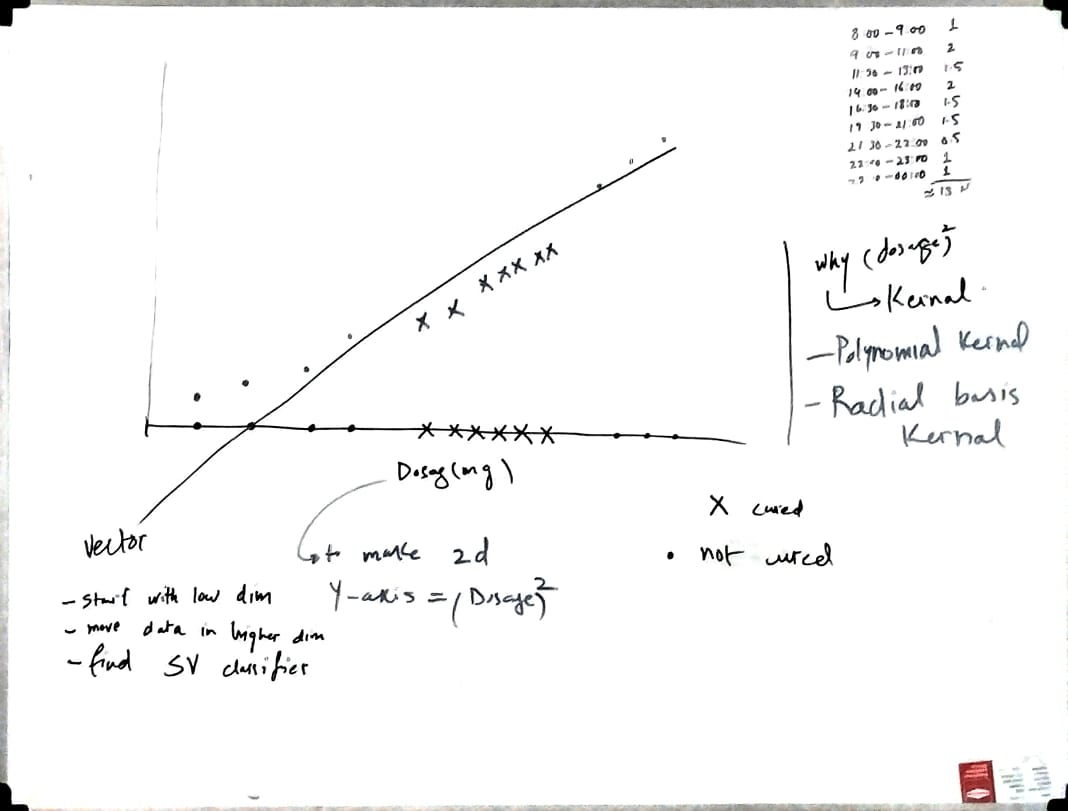 8:00 - 9:00 1
9:00 - 11:00 2
11:30 - 13:00 1.5
14:00 - 16:00 2
16:30 - 18:00 1.5
19:30 - 21:00 1.5
21:30 - 22:00 0.5
22:00 - 23:00 1
- 00:00 1
≈ 13
why (dosage)²
Kernal
- Polynomial Kernel
- Radial basis
Kernal
Dosag(mg)
X cured
• not ured
vector
to make 2d
Y-axis = (Dosage)²
- Start with low dim
- move data in higher dim
- find SV classifier